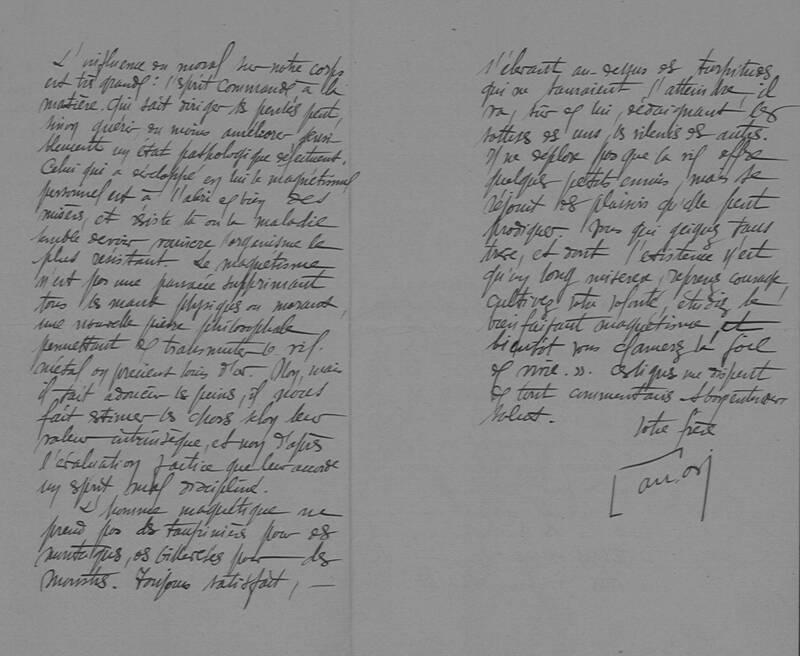 L'influence du moral sur notre corps
est très grande : l'esprit commande à la
matière. Qui sait diriger ses pensées peut,
sinon guérir, du moins améliorer sensi-
blement un état pathologique défectueux.
Celui qui a développé en lui le magnétisme
personnel est à l'abri de bien des
misères, et résiste là où la maladie
semble devoir vaincre l'organisme le
plus résistant. Le magnétisme
n'est pas une panacée supprimant
tous les maux physiques ou moraux,
une nouvelle pierre philosophale
permettant de transmuter le vil
métal en précieux d'or. Non, mais
il sait adoucir les peines, il nous
fait estimer les choses selon leur
valeur intrinsèque, et non d'après
l'évaluation factice que leur accorde
un esprit mal discipliné.
L'homme magnétique ne
prend pas des taupinières pour des
montagnes, des pour des
monstres. Toujours satisfait, —
s'élevant au-dessus des turpitudes
qui ne sauraient l'atteindre, il
va, sûr de lui, dédaignant les
sottises des uns, les des autres.
Il ne déplore pas que la vie offre
quelques petits ennuis, mais se
réjouit des plaisirs qu'elle peut
prodiguer. Vous qui geignez sans
trêve, et dont l'existence n'est
qu'un long miserere, reprenez courage,
cultivez votre volonté, étudiez le
bienfaisant magnétisme, et
bientôt vous clamerez la joie
de vivre. ». Ces lignes me dispensent
de tout commentaire.
Votre frère